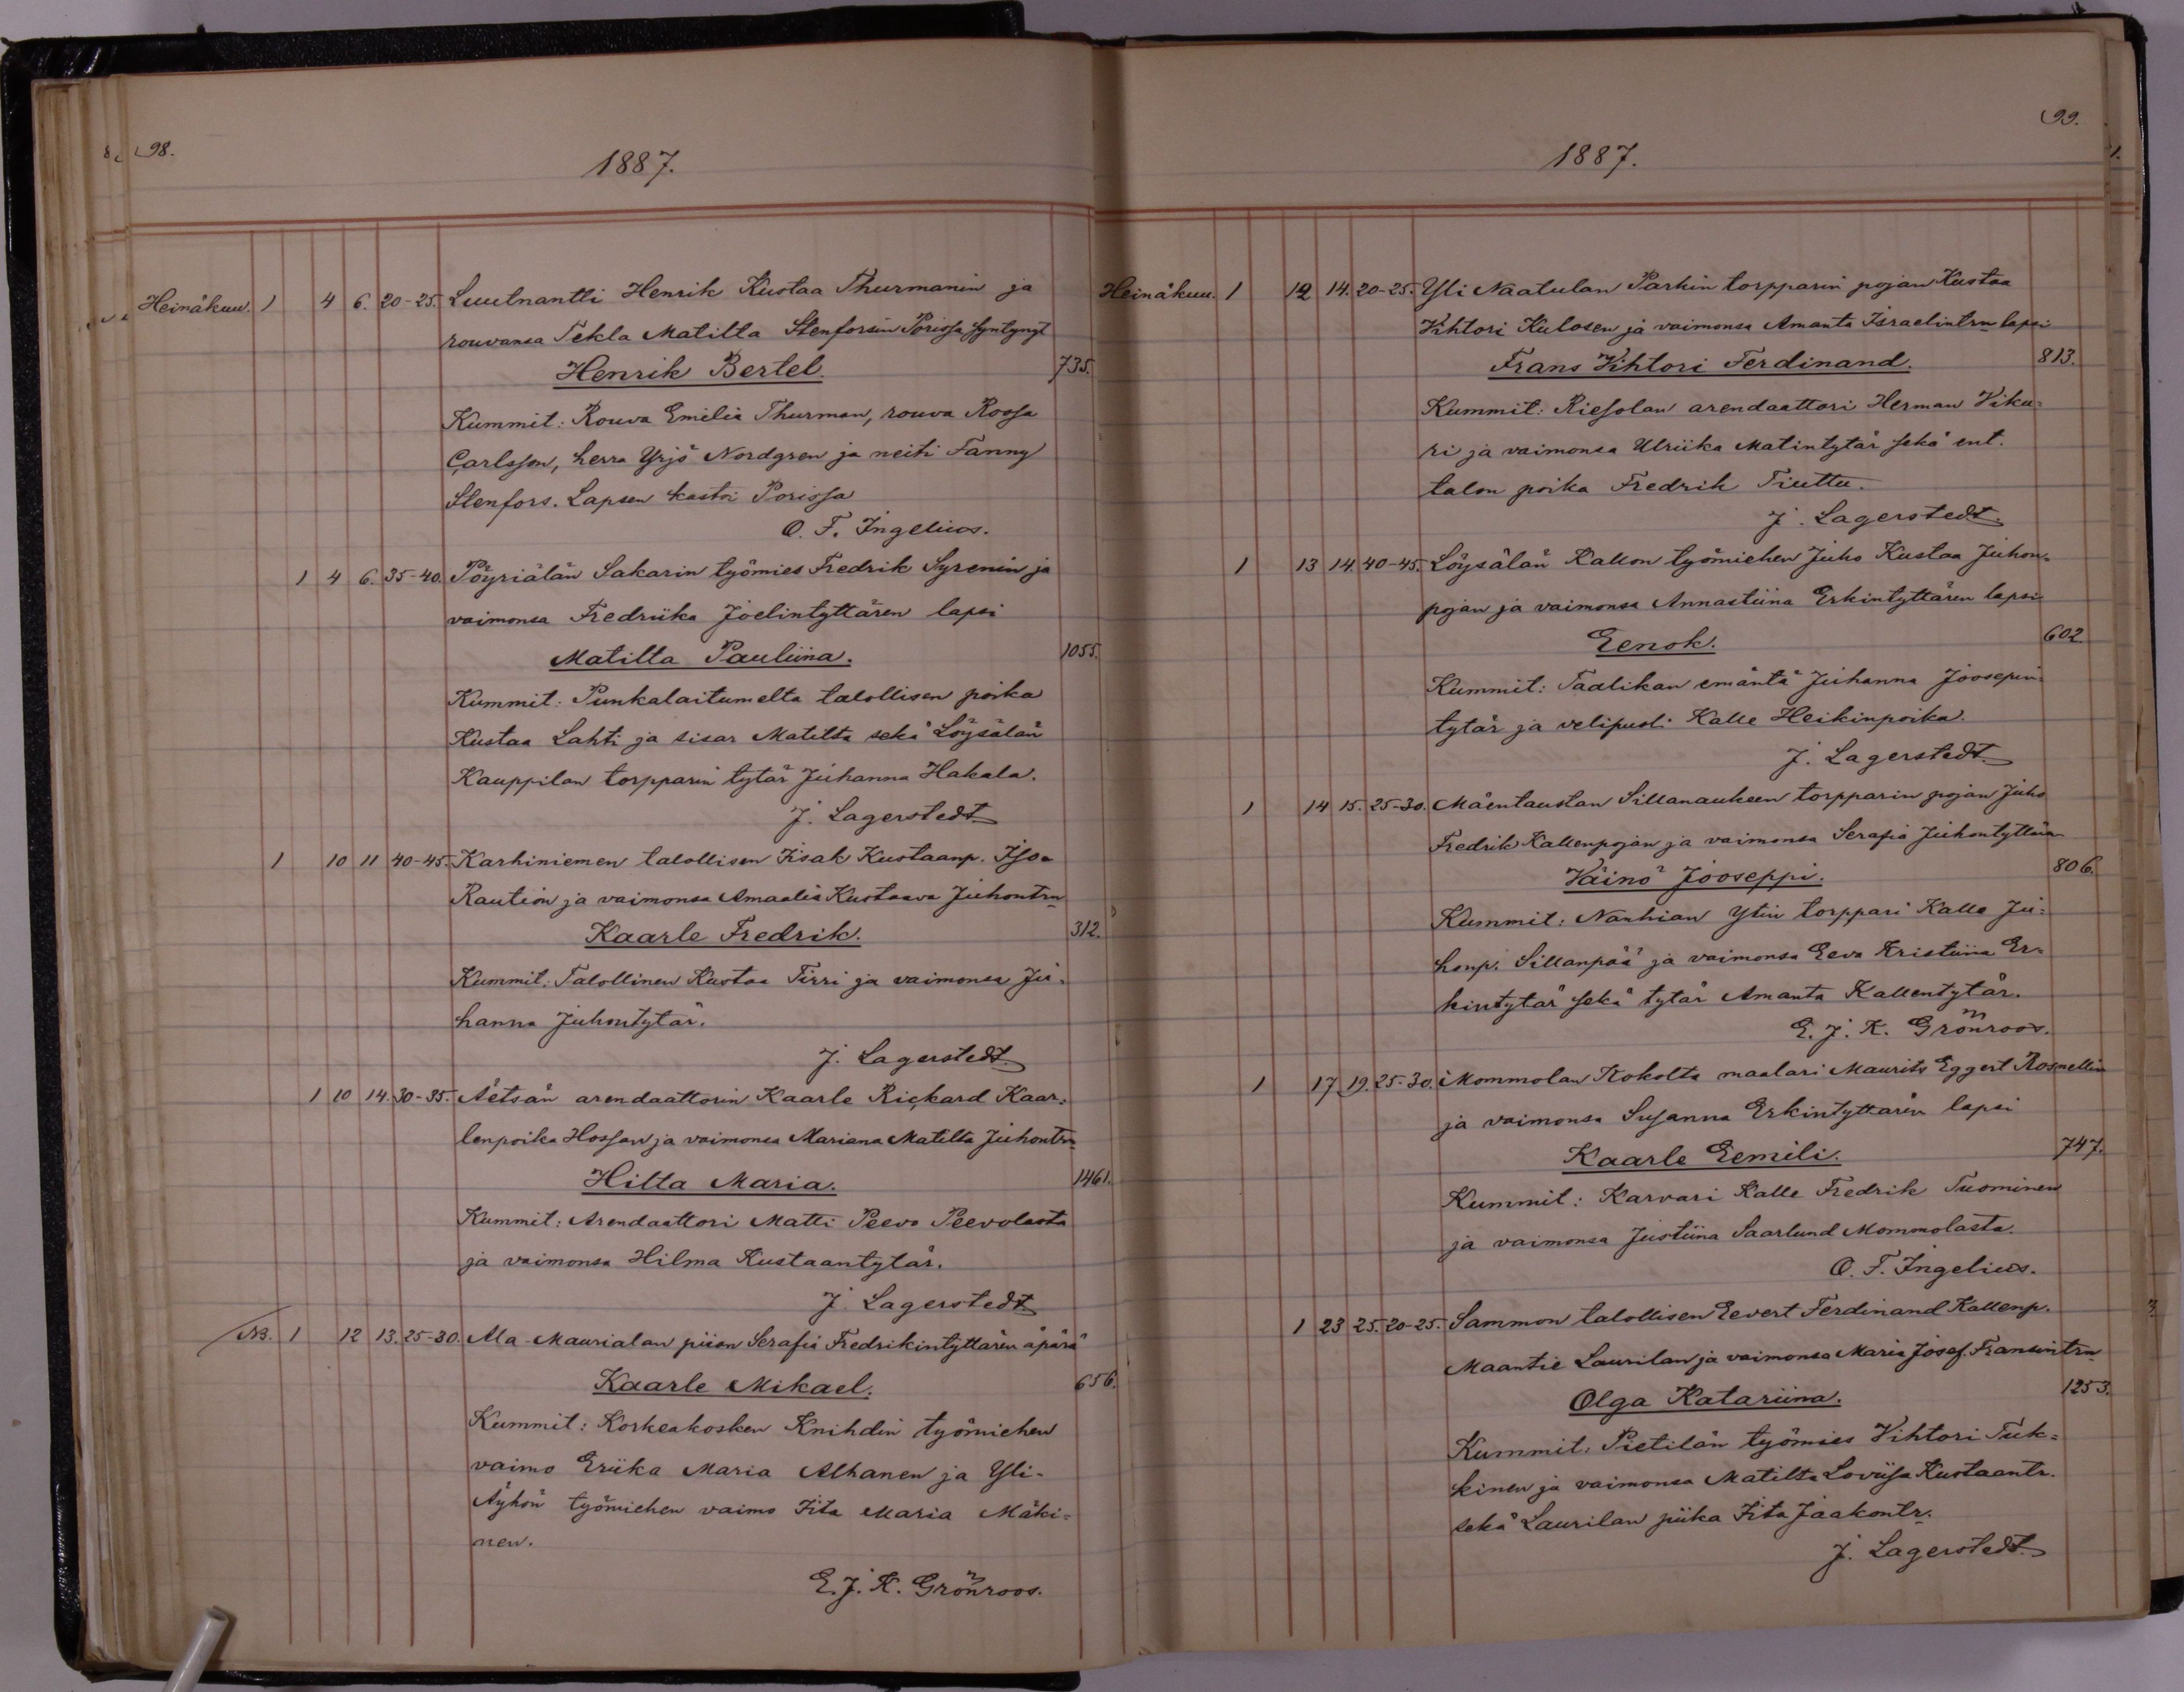 98.
1887.
Heinäkuu. 1 4 6. 20-25. Luutnantti Henrik Kustaa Thurmanin ja
rouvansa Tekla Matilta Stenforsin Porissa syntynyt
Henrik Bertel. 735.
Kummit: Rouva Emilia Thurman, rouva Roosa
Carlsson, herra Yrjö Nordgren ja neiti Fanny
Stenfors. Lapsen kastoi Porissa
O. F. Ingelius.
1 4 6. 35-40. Pöyriälän Sakarin työmies Fredrik Syrenin ja
vaimonsa Fredriika Joelintyttären lapsi
Matilta Pauliina. 1055.
Kummit: Punkalaitumelta talollisen poika
Kustaa Lahti ja sisar Matilta sekä Löysälän
Kauppilan torpparin tytär Juhanna Hakala.
J. Lagerstedt
1 10 11 40-45. Karhiniemen talollisen Iisak Kustaanp. Iso-
Raution ja vaimonsa Amaalia Kustaava Juhontrn
Kaarle Fredrik. 312.
Kummit: Talollinen Kustaa Tirri ja vaimonsa Ju-
hanna Juhontytär.
J. Lagerstedt
1 10 14. 30-35. Äetsän arendaattorin Kaarle Rickard Kaar-
lenpoika Hossan ja vaimonsa Mariana Matilta Juhontrn
Hilta Maria. 1461.
Kummit: Arendaattori Matti Peevo Peevolasta
ja vaimonsa Hilma Kustaantytär.
J. Lagerstedt
NB. 1 12 13. 25-30. Ala-Maurialan piian Serafia Fredrikintyttären äpärä
Kaarle Mikael. 656.
Kummit: Korkeakosken Knihdin työmiehen
vaimo Eriika Maria Alhanen ja Yli-
Äyhön työmiehen vaimo Iita Maria Mäki-
nen.
E. J. K. Grönroos.
99.
1887.
Heinäkuu. 1 12 14. 20-25. Yli Naatulan Parhin torpparin pojan Kustaa
Vihtori Kulosen ja vaimonsa Amanta Israelintrn lapsi
Frans Vihtori Ferdinand. 813.
Kummit: Riesolan arendaattori Herman Viku-
ri ja vaimonsa Ulriika Matintytär sekä ent.
talon poika Fredrik Tiuttu.
J. Lagerstedt.
1 13 14. 40-45. Löysälän Kallon työmiehen Juho Kustaa Juhon-
pojan ja vaimonsa Annastiina Erkintyttären lapsi
Eenok. 602
Kummit: Taalikan emäntä Juhanna Joosepin-
tytär ja velipuoli Kalle Heikinpoika.
J. Lagerstedt.
1 14 15. 25-30. Mäentaustan Sillanaukeen torpparin pojan Juho
Fredrik Kallenpojan ja vaimonsa Serafia Juhontyttären
Väinö Jooseppi. 806.
Kummit: Nanhian Ytin torppari Kalle Ju-
honp. Sillanpää ja vaimonsa Eeva Kristiina Er-
kintytär sekä tytär Amanta Kallentytär.
E. J. K. Grönroos.
1 17 19. 25-30. Mommolan Kokolta maalari Maurits Eggert Rosnellin
ja vaimonsa Susanna Erkintyttären lapsi
Kaarle Eemili. 747.
Kummit: Karvari Kalle Fredrik Tuominen
ja vaimonsa Justiina Saarlund Mommolasta.
O. F. Ingelius.
1 23 25. 20-25. Sammon talollisen Eevert Ferdinand Kallenp.
Maantie Laurilan ja vaimonsa Maria Josef. Fransintrn
Olga Katariina. 1253.
Kummit: Pietilän työmies Vihtori Tuk-
kinen ja vaimonsa Matilta Loviisa Kustaantr.
sekä Laurilan piika Iita Jaakontr.
J. Lagerstedt.